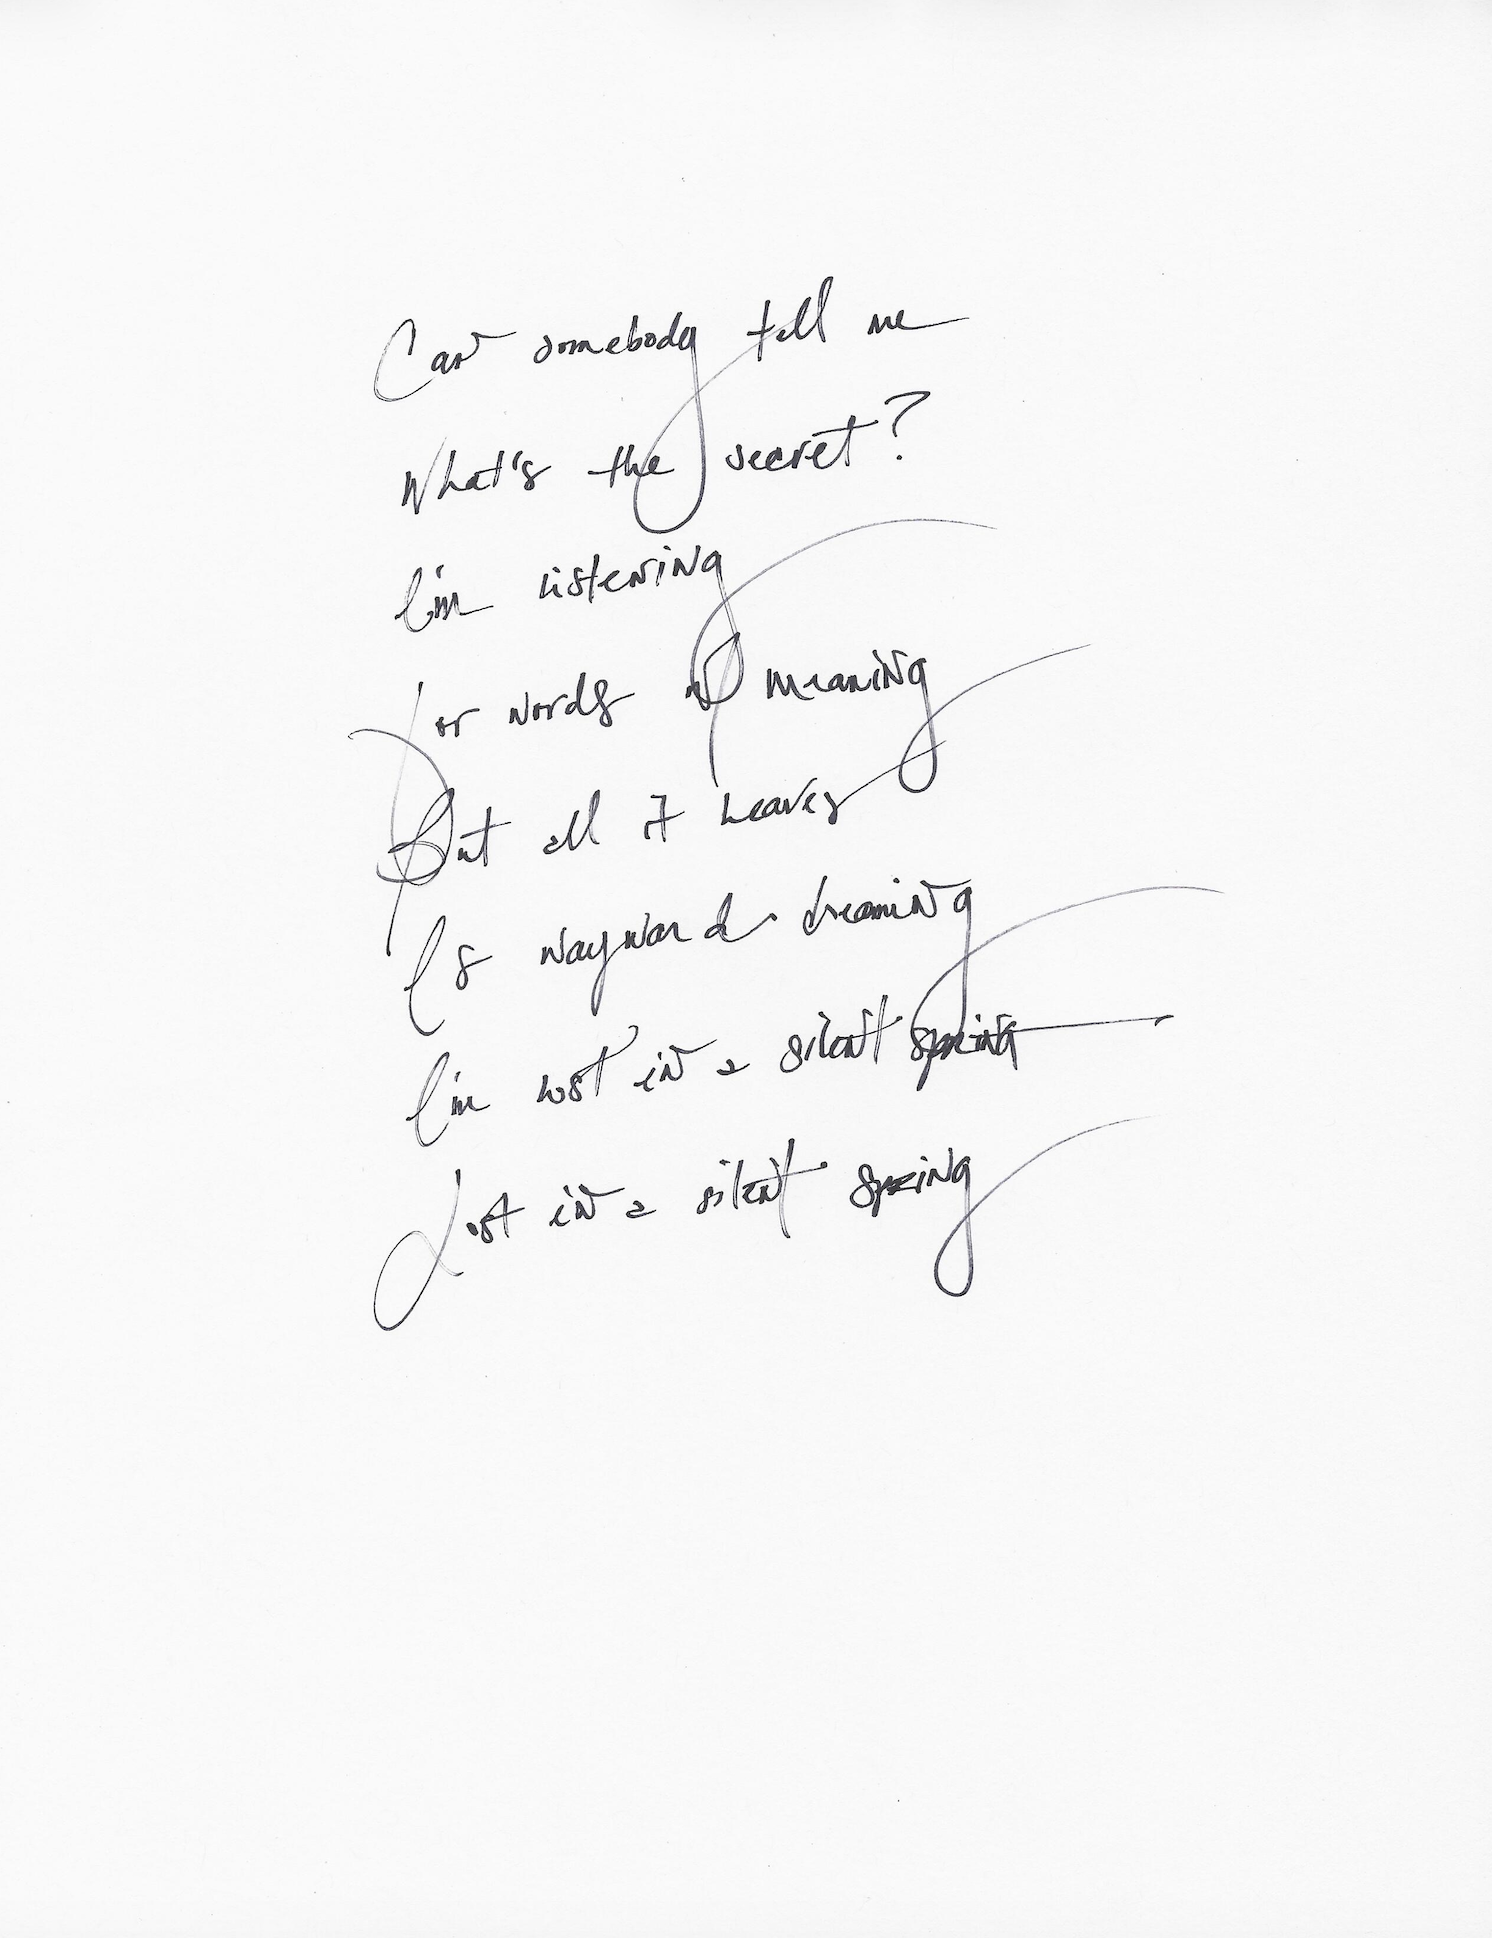 Can somebody tell me
What's the secret?
I'm listening
for words of meaning
But all it leaves
Is wayward dreaming
I'm lost in a silent spring
Lost in a silent spring